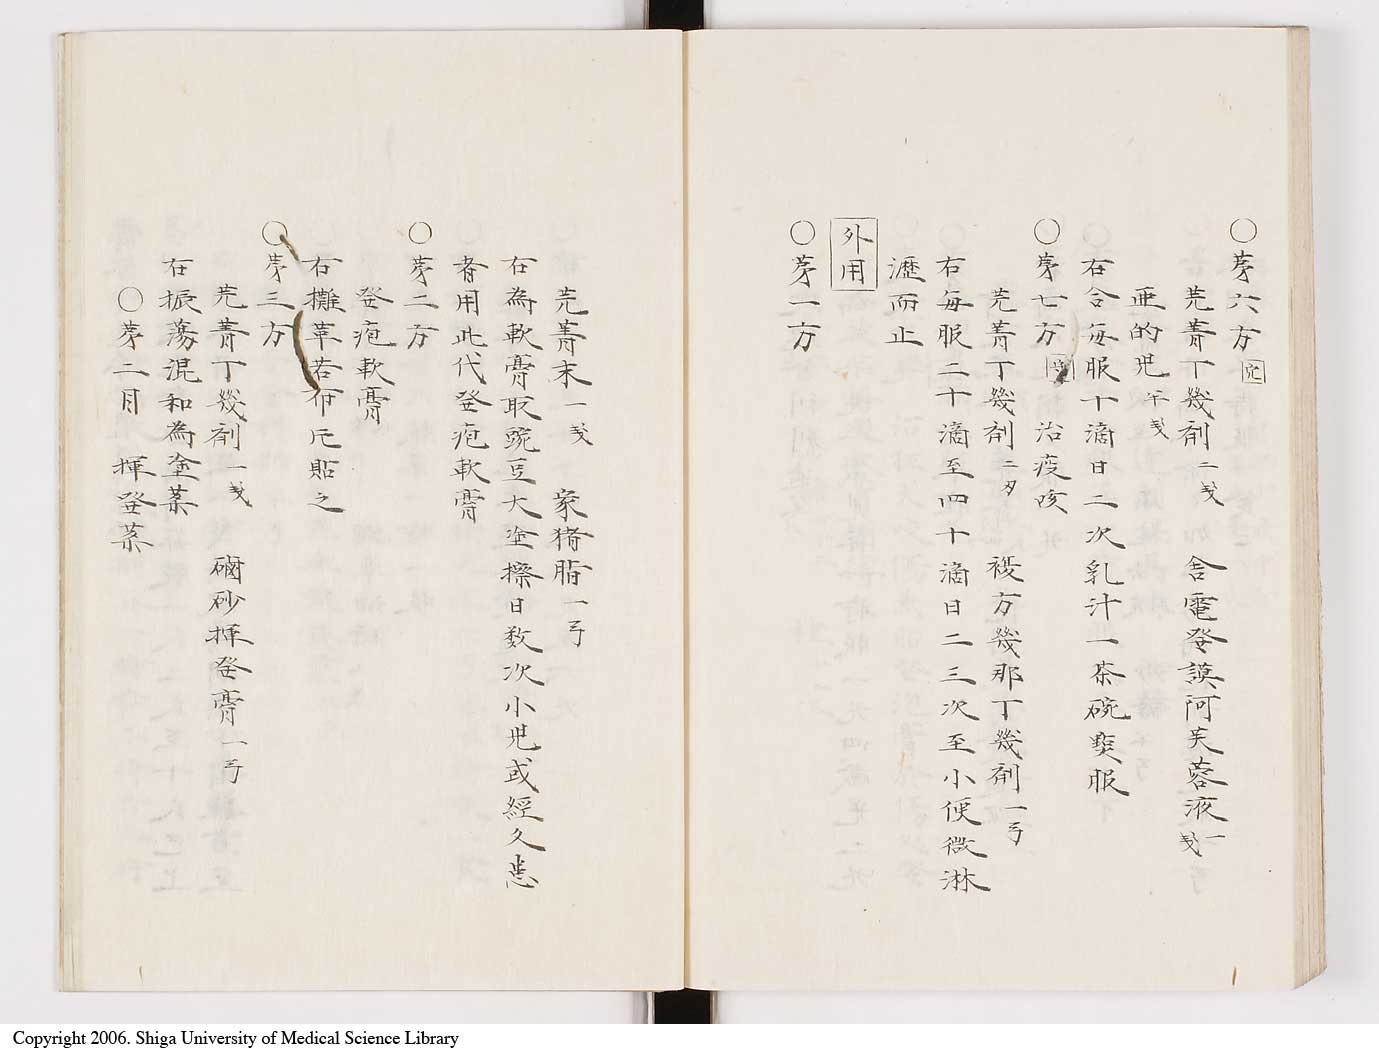 ○苐六方
芫菁丁幾剤二戔 舎電發謨阿芙蓉液一戔
亜的児半戔
右合毎服十滴日二次乳汁一茶碗煎服
○苐七方 治疫咳
芫菁丁幾剤二夕 椶方幾那丁幾剤一弓
右毎服二十滴至四十滴日二三次至小便微淋
瀝而止
外用
○苐一方
芫菁末一戔 家猪脂一弓
右為軟膏取豌豆大塗擦日数次小児或經久患
者用此代發疱軟膏
○苐二方
發疱軟膏
右攤革若布片貼之
○苐三方
芫菁丁幾剤一戔 磠砂揮發膏一弓
右振蕩混和為塗薬
○苐二月 揮發薬
Copyright 2006. Shiga University of Medical Science Library